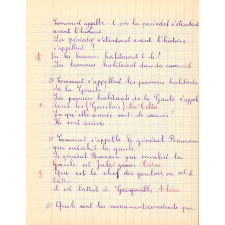 Comment appelle-t-on la période s'étendant
avant l'histoire
La période s'étendant avant l'histoire
s'appellent ?
Où les hommes habitaient-t-il ?
Les hommes habitaient dans des cavernes
2) Comment s'appellent les premiers habitants
de la Gaule
Les premiers habitants de la Gaule s'appel
lent les (Gaulois) les Celtes
En quelle année sont-ils arrivés ?
Ils sont arrivés
3) Comment s'appelle le général Romain
qui envahit la gaule ?
Le général Romain que envahit la
Gaule est Jules César
Que est le chef des gaulois
battu
il est battu à Alésia
4) Quels sont les monuments construits par